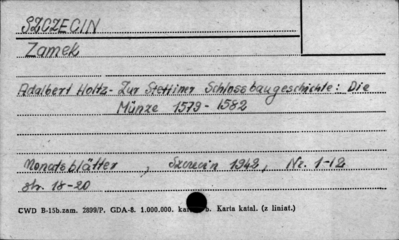 SZCZECIN
Zamek
Adalbert Holtz - Zur Stettiner Schlossbaugeschichte: Die
Münze 1579-1582
Monatsblätter, Szczecin 1942, Nr. 1-12
str. 18-20
CWD B-15b.zam. 2899/P. GDA-8. 1.000.000. Karta katal. (z liniat.)